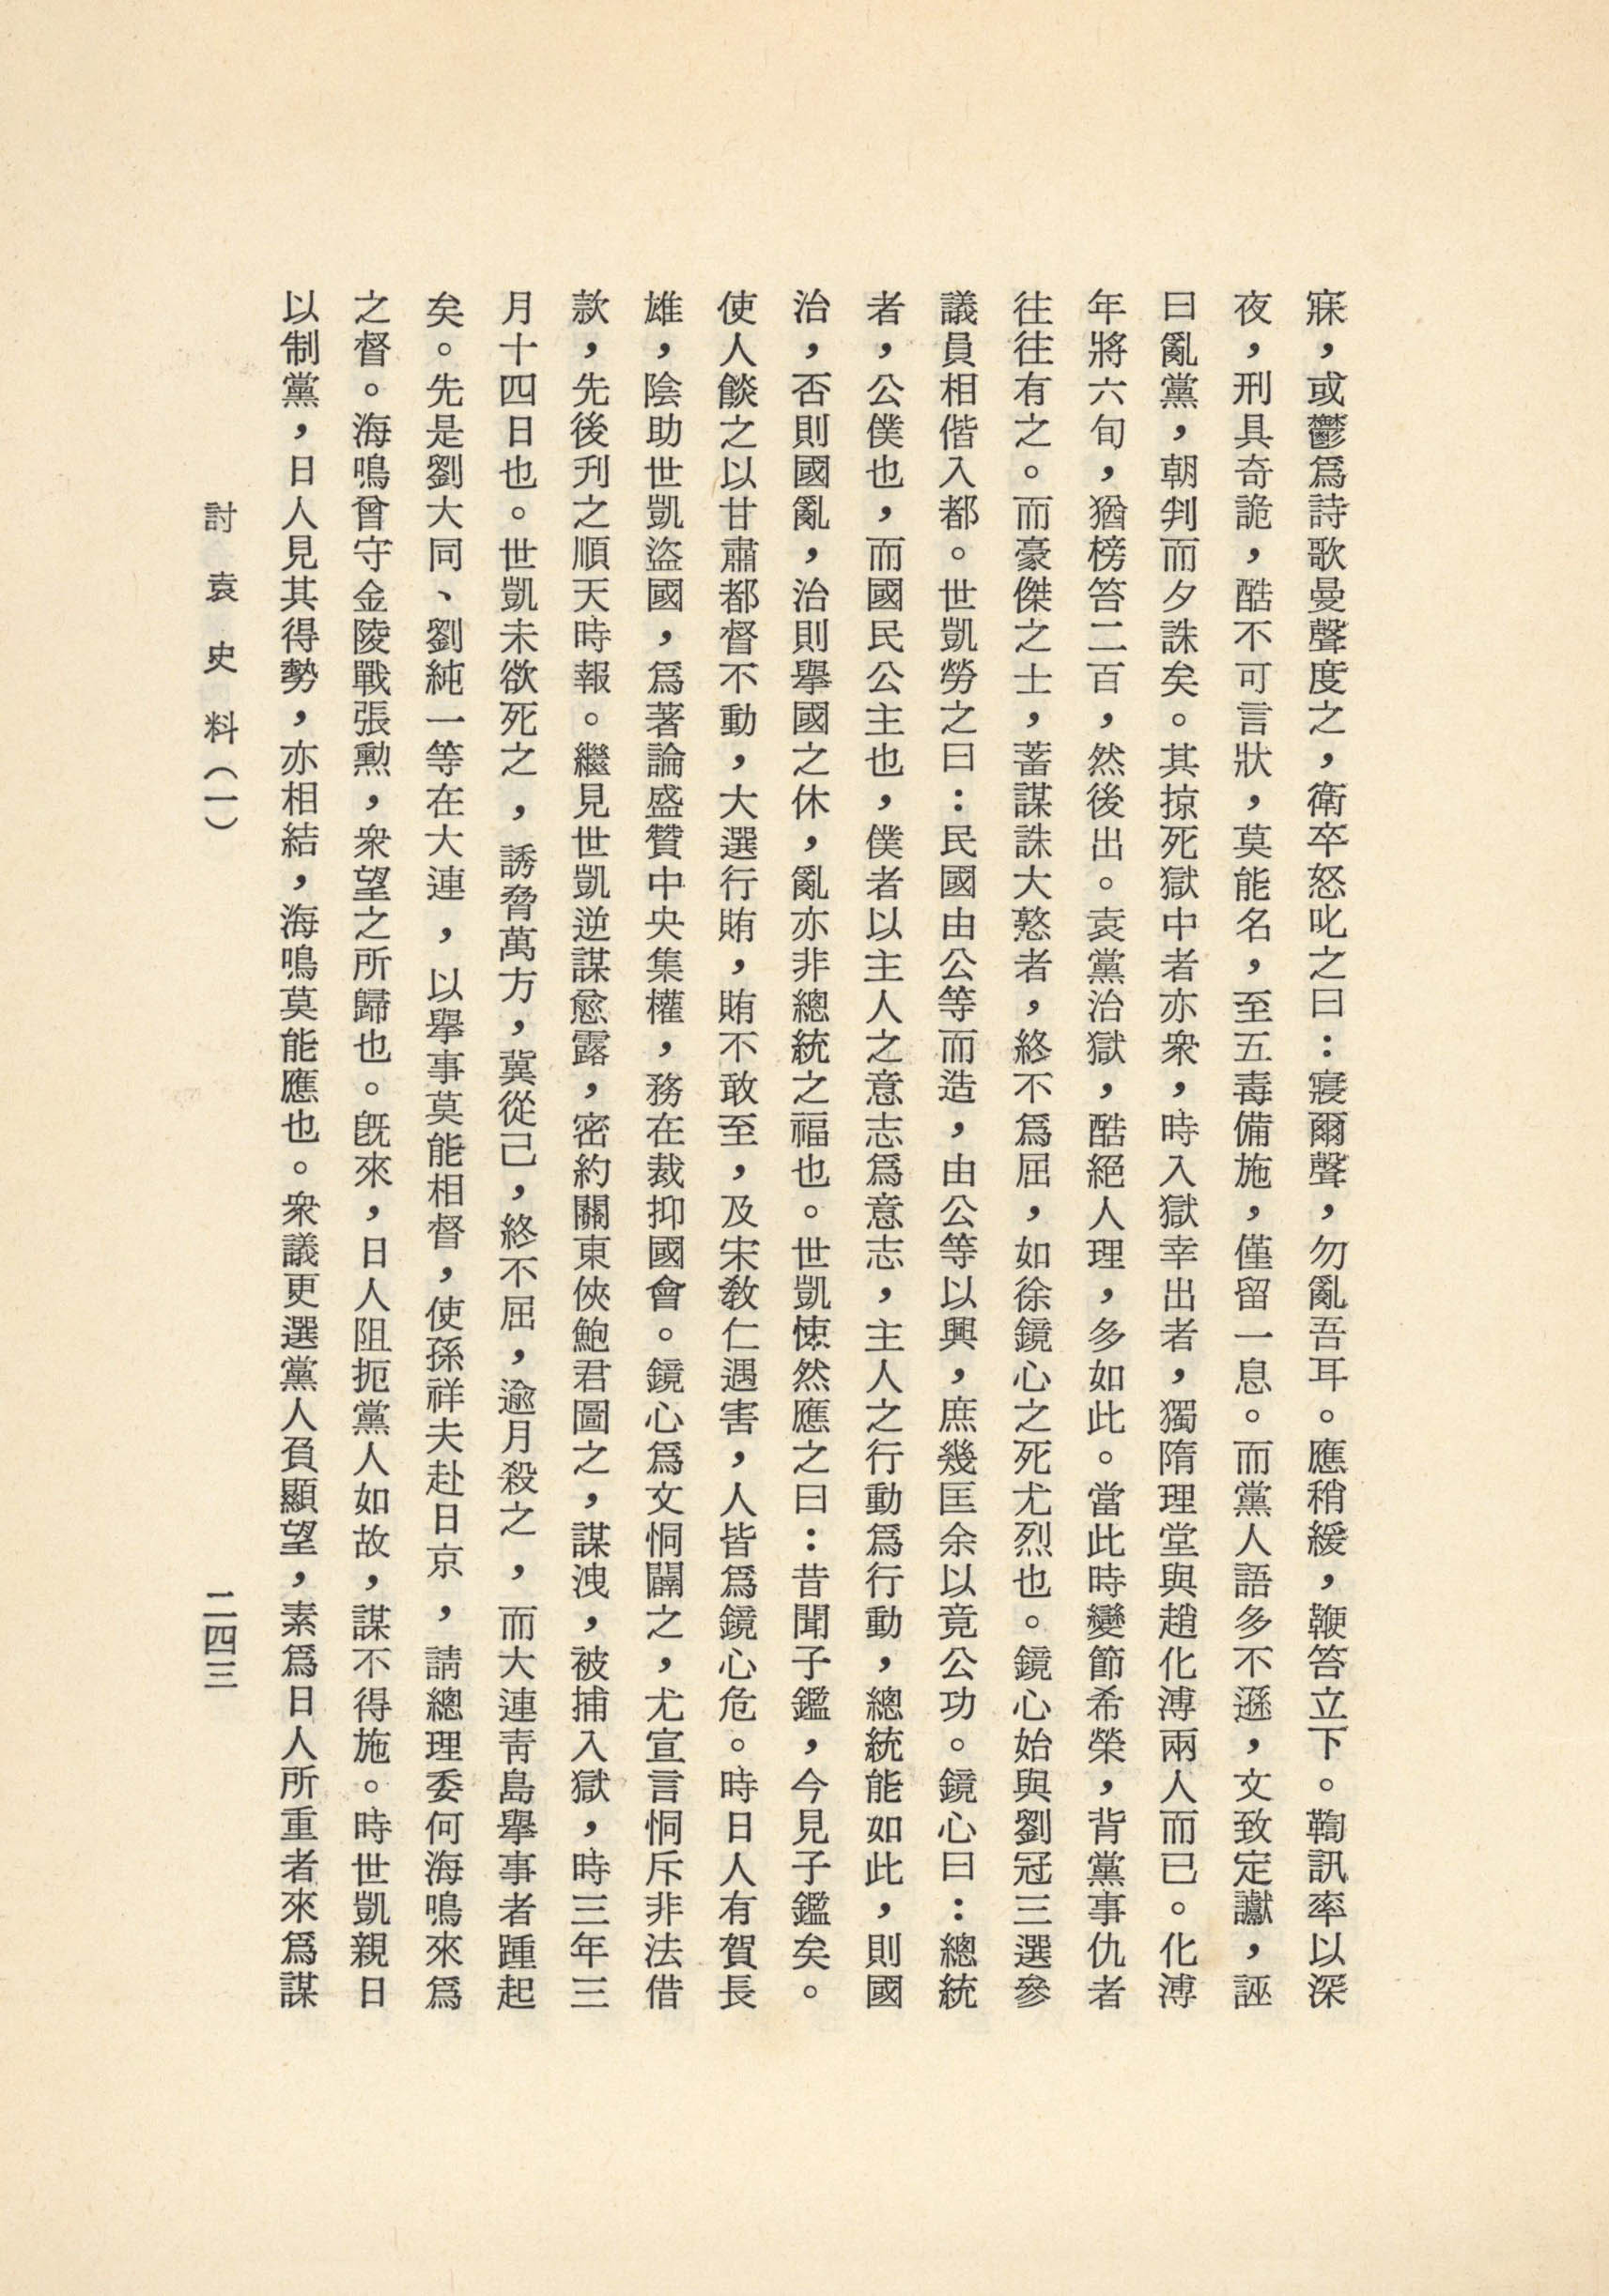 寐，或鬱爲詩歌曼聲度之，衛卒怒叱之曰：寢爾聲，勿亂吾耳。應稍緩，鞭笞立下。鞫訊率以深
夜，刑具奇詭，酷不可言狀，莫能名，至五毒備施，僅留一息。而黨人語多不遜，文致定讞，誣
曰亂黨，朝判而夕誅矣。其掠死獄中者亦衆，時入獄幸出者，獨隋理堂與趙化溥兩人而已。化溥
年將六旬，猶榜笞二百，然後出。袁黨治獄，酷絕人理，多如此。當此時變節希榮，背黨事仇者
往往有之。而豪傑之士，蓄謀誅大憝者，終不爲屈，如徐鏡心之死尤烈也。鏡心始與劉冠三選參
議員相偕入都。世凱勞之曰：民國由公等而造，由公等以興，庶幾匡余以竟公功。鏡心曰：總統
者，公僕也，而國民公主也，僕者以主人之意志爲意志，主人之行動爲行動，總統能如此，則國
治，否則國亂，治則舉國之休，亂亦非總統之福也。世凱悚然應之曰：昔聞子鑑，今見子鑑矣。
使人餤之以甘肅都督不動，大選行賄，賄不敢至，及宋敎仁遇害，人皆爲鏡心危。時日人有賀長
雄，陰助世凱盜國，爲著論盛贊中央集權，務在裁抑國會。鏡心爲文恫闢之，尤宣言恫斥非法借
款，先後刋之順天時報。繼見世凱逆謀愈露，密約關東俠鮑君圖之，謀洩，被捕入獄，時三年三
月十四日也。世凱未欲死之，誘脅萬方，冀從己，終不屈，逾月殺之，而大連靑島舉事者踵起
矣。先是劉大同、劉純一等在大連，以舉事莫能相督，使孫祥夫赴日京，請總理委何海鳴來爲
之督。海鳴曾守金陵戰張勳，衆望之所歸也。旣來，日人阻扼黨人如故，謀不得施。時世凱親日
以制黨，日人見其得勢，亦相結，海鳴莫能應也。衆議更選黨人負顯望，素爲日人所重者來爲謀
討袁史料（一）
二四三